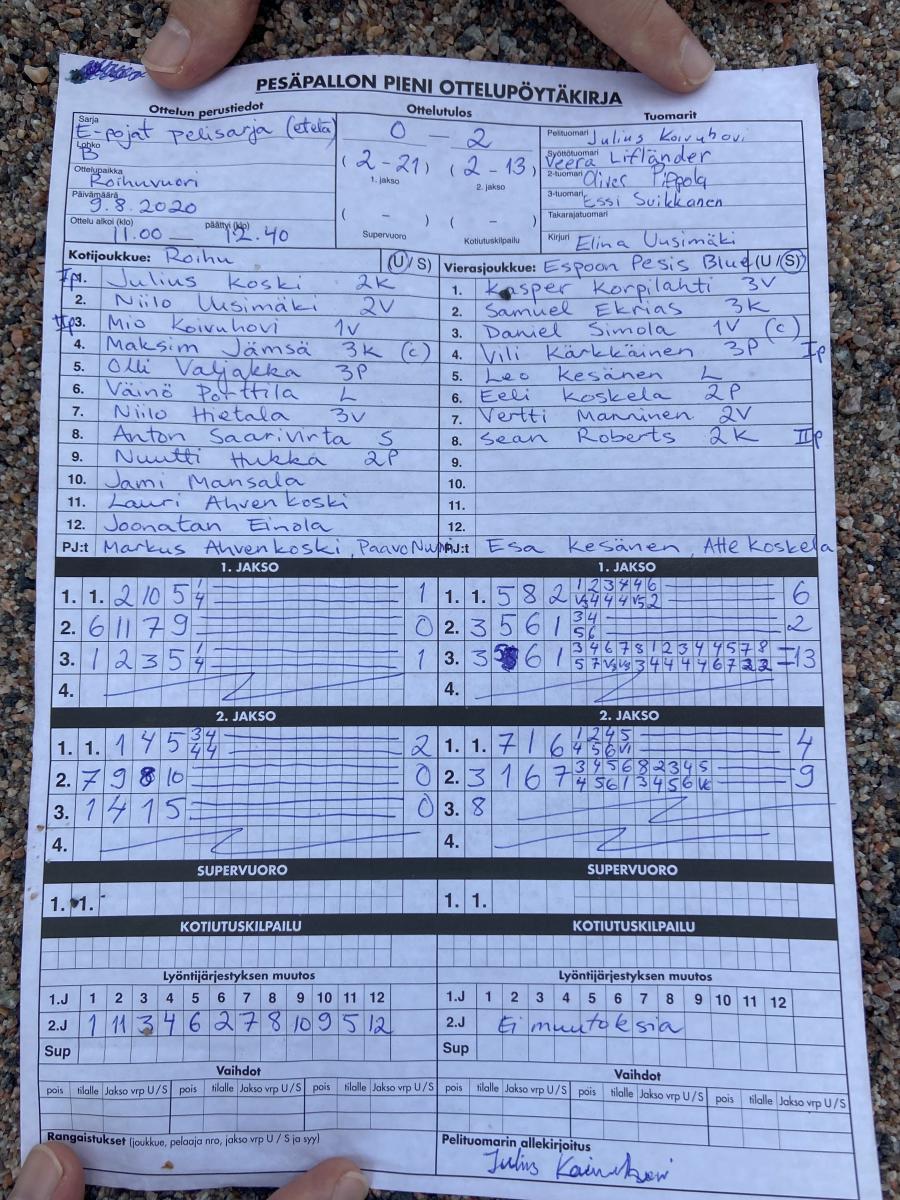 PESÄPALLON PIENI OTTELUPÖYTÄKIRJA
Ottelun perustiedot
Sarja
E-pojat pelisarja (etelä)
Lohko
B
Ottelupaikka
Roihuvuori
Päivämäärä
9.8.2020
Ottelu alkoi (klo) päättyi (klo)
11.00 — 12.40
Ottelutulos
0 - 2
(2-21) (2-13)
1. jakso 2. jakso
( - ) ( - )
Supervuoro Kotiutuskilpailu
Tuomarit
Pelituomari Julius Koivuhovi
Syöttötuomari Veera Lifländer
2-tuomari Oliver Pippola
3-tuomari Essi Suikkanen
Takarajatuomari
Kirjuri Elina Uusimäki
Kotijoukkue: Roihu (U / S)
Ip 1. Julius Koski 2K
2. Niilo Uusimäki 2V
IIp 3. Mio Koivuhovi 1V
4. Maksim Jämsä 3K (c)
5. Olli Valjakka 3P
6. Väinö Porttila L
7. Niilo Hietala 3V
8. Anton Saarivirta S
9. Nuutti Hukka 2P
10. Jami Mansala
11. Lauri Ahvenkoski
12. Joonatan Einola
PJ:t Markus Ahvenkoski, Paavo
Vierasjoukkue: Espoon Pesis Blue (U / S)
1. Kasper Korpilahti 3V
2. Samuel Ekrias 3K
3. Daniel Simola 1V (c)
4. Vili Kärkkäinen 3P Ip
5. Leo Kesänen L
6. Eeli Koskela 2P
7. Vertti Manninen 2V
8. Sean Roberts 2K IIp
9.
10.
11.
12.
PJ:t Esa Kesänen, Atte Koskela
1. JAKSO
1. 1. 2 10 5 1/4 1
2. 6 11 7 9 0
3. 1 2 3 5 1/4 1
4.
1. JAKSO
1. 1. 5 8 2 6
2. 3 5 6 1 3 4 2
5 6
3. 3 6 1 3 4 6 7 8 1 2 3 4 4 5 7 8 =13
4.
2. JAKSO
1. 1. 1 4 5 3 4 2
4 4
2. 7 9 8 10 0
3. 1 4 1 5 0
4.
2. JAKSO
1. 1. 7 1 6 1 2 4 5 4
2. 3 1 6 7 3 4 5 6 8 2 3 4 5 9
3. 8
4.
SUPERVUORO
1. 1.
SUPERVUORO
1. 1.
KOTIUTUSKILPAILU
KOTIUTUSKILPAILU
Lyöntijärjestyksen muutos
1.J 1 2 3 4 5 6 7 8 9 10 11 12
2.J 1 11 3 4 6 2 7 8 10 9 5 12
Sup
Lyöntijärjestyksen muutos
1.J 1 2 3 4 5 6 7 8 9 10 11 12
2.J Ei muutoksia
Sup
Vaihdot
pois tilalle Jakso vrp U / S pois tilalle Jakso vrp U / S pois tilalle Jakso vrp U / S
Vaihdot
pois tilalle Jakso vrp U / S pois tilalle Jakso vrp U / S pois tilalle Jakso vrp U / S
Rangaistukset (joukkue, pelaaja nro, jakso vrp U / S ja syy)
Pelituomarin allekirjoitus
Julius